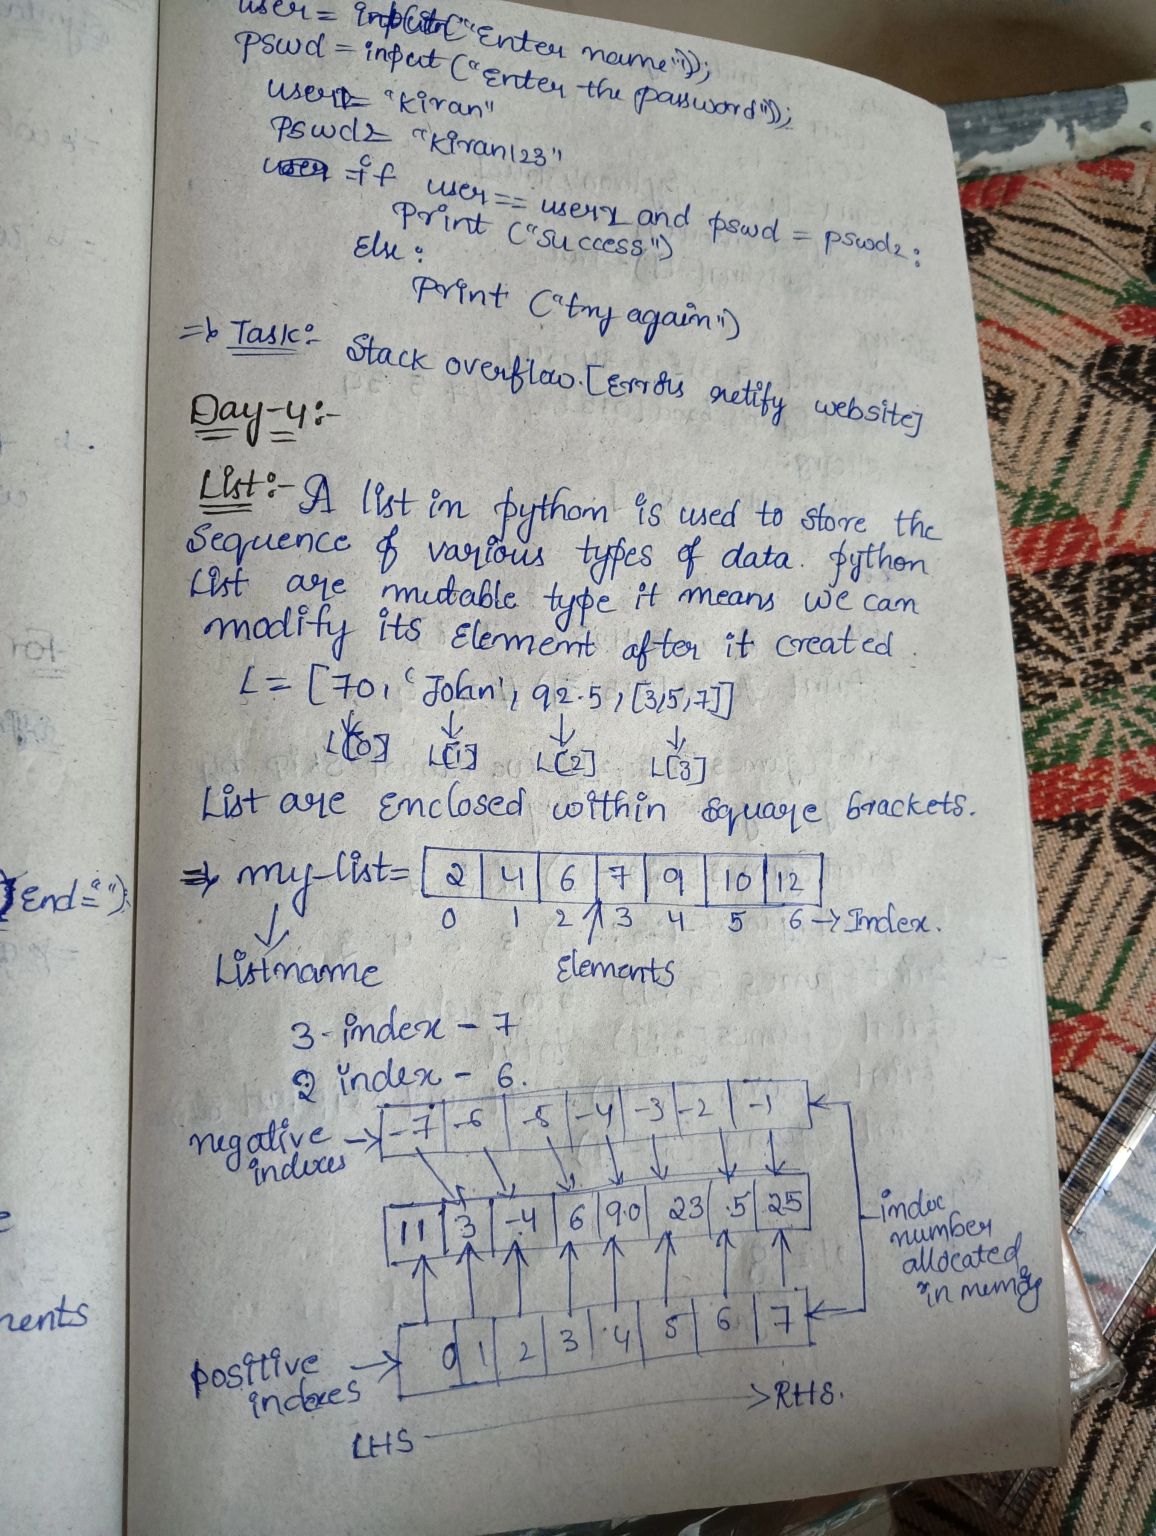 user = input("Enter name"));
pswd = input ("Enter the password"));
user2= "Kiran"
Pswd2 "Kiran123"
if user == user2 and pswd = pswd2:
Print ("Success")
Else:
Print ("try again")
=> Task:- Stack overflow. [Errors retify website]
Day-4:-
List:- A list in python is used to store the
Sequence of various types of data. python
List are mutable type it means we can
modify its Element after it created.
L = [70, 'John', 92.5, [3,5,7]]
L[0] L[1] L[2] L[3]
List are Enclosed within square brackets.
=> my-list= 2 4 6 7 9 10 12
0 1 2 3 4 5 6 → Index.
Listname Elements
3- index - 7
2 index - 6.
negative indexes → -7 -6 -5 -4 -3 -2 -1
11 3 -4 6 90 23 .5 25
index
number
allocated
in memory
0 1 2 3 4 5 6 7
positive
indexes
LHS → RHS.
End=" ");
ments